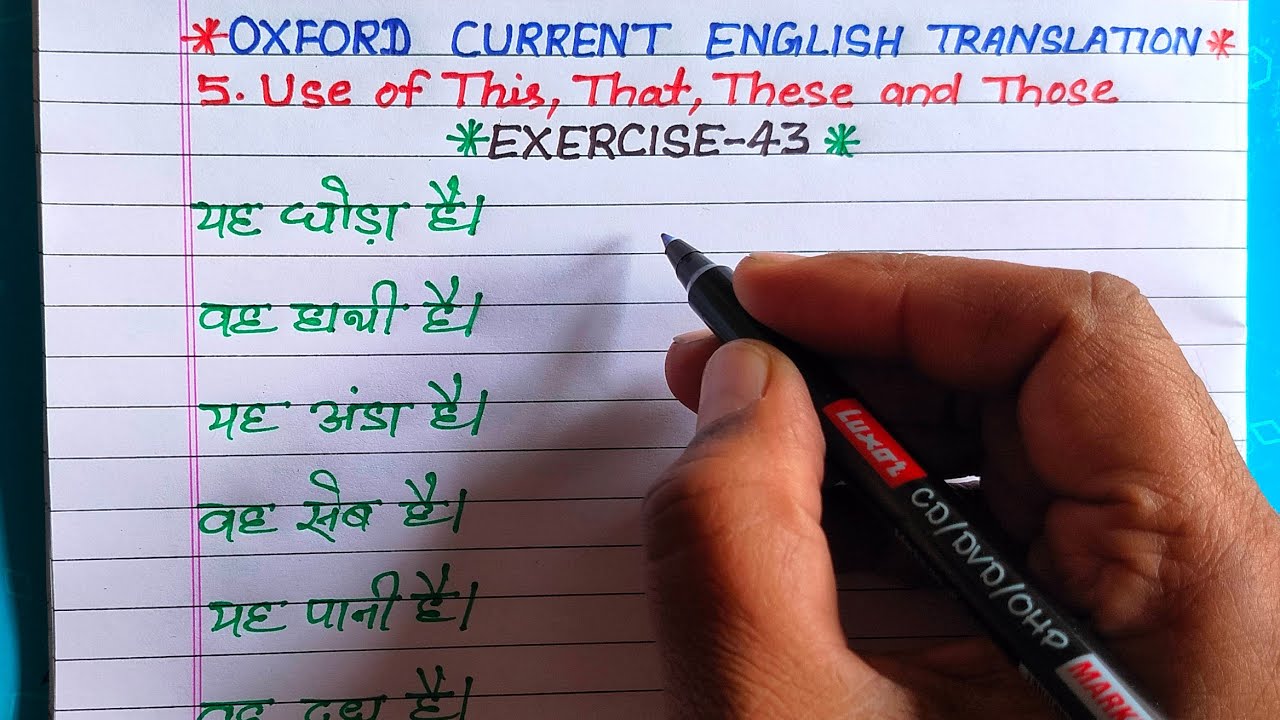 *OXFORD CURRENT ENGLISH TRANSLATION*
5. Use of This, That, These and Those
*EXERCISE-43*
यह घोड़ा है।
वह हाथी है।
यह अंडा है।
वह सेब है।
यह पानी है।
वह दूध है।
Luxor CD/DVD/OHP MARK